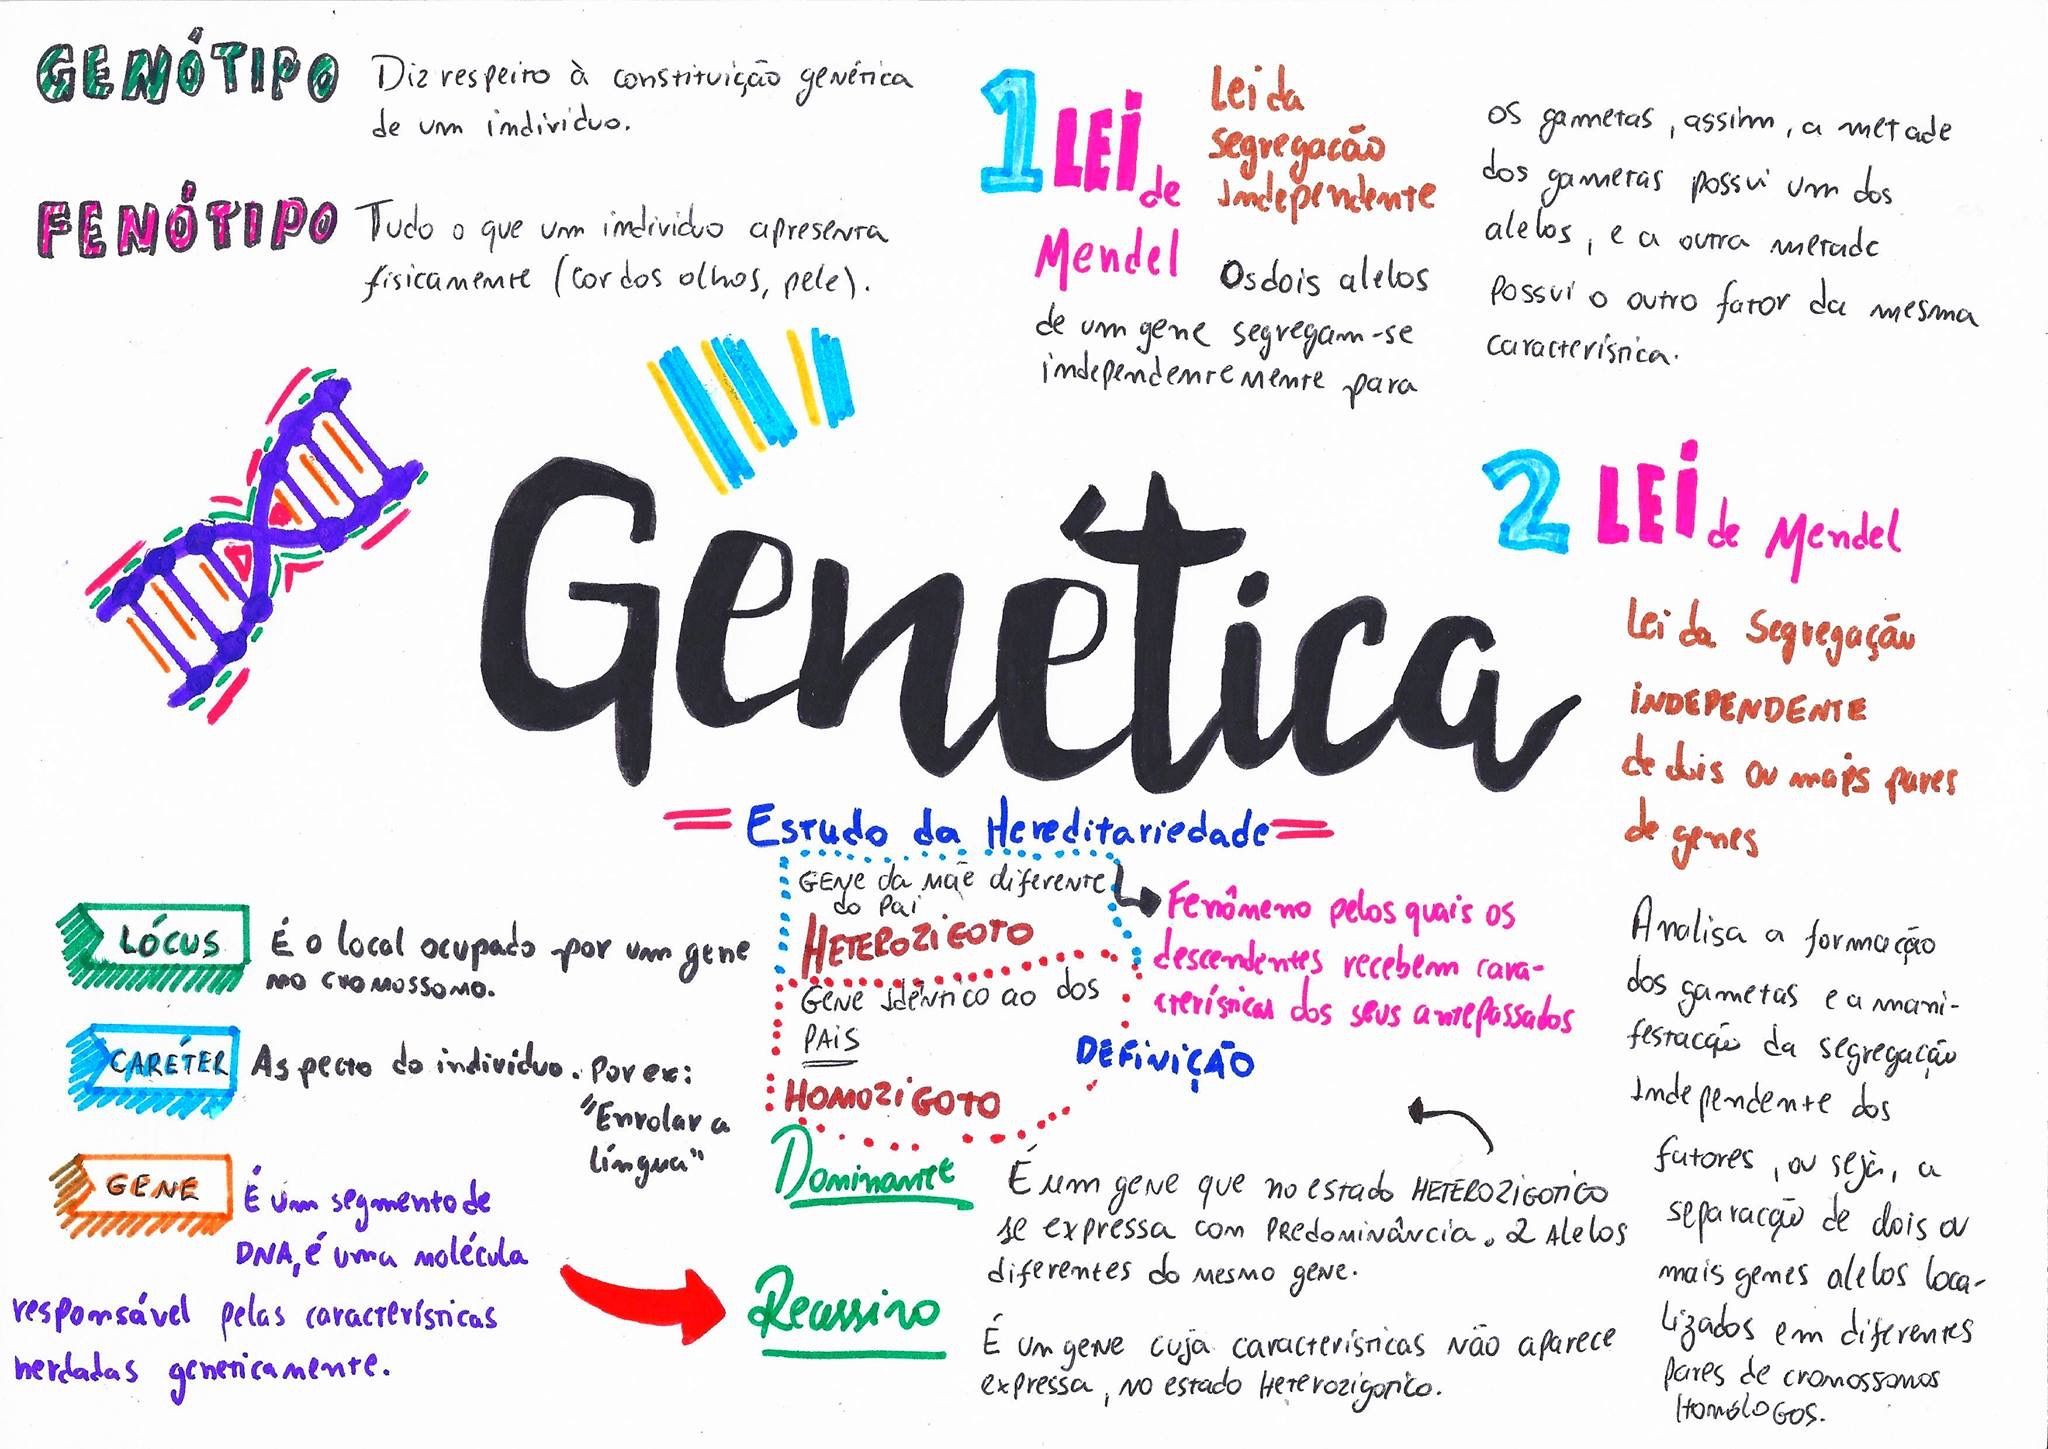 GENÓTIPO
Diz respeito à constituição genética
de um indivíduo.
FENÓTIPO
Tudo o que um indivíduo apresenta
fisicamente (cor dos olhos, pele).
1 LEI de
Mendel
Lei da
segregacão
Independente
Os dois alelos
de um gene segregam-se
independentemente para
os gametas, assim, a metade
dos gametas possui um dos
alelos, e a outra metade
possui o outro fator da mesma
característica.
2 LEI de Mendel
Lei da Segregação
INDEPENDENTE
de dois ou mais pares
de genes
Analisa a formação
dos gametas e a mani-
festacção da segregação
Independente dos
fatores, ou seja, a
separacção de dois ou
mais genes alelos loca-
lizados em diferentes
pares de cromossomos
Homólogos.
Genética
Estudo da Hereditariedade
GENE da mãe diferente
do Pai
HETEROZIGOTO
GENE Idêntico ao dos
PAIS
HOMOZIGOTO
Fenômeno pelos quais os
descendentes recebem cara-
cterísticas dos seus antepassados
DEFINIÇÃO
LÓCUS
É o local ocupado por um gene
no cromossomo.
CARÉTER
Aspecto do indivíduo. Por ex:
"Enrolar a
língua"
GENE
É um segmento de
DNA, é uma molécula
responsável pelas características
herdadas geneticamente.
Dominante
É um gene que no estado HETEROZIGOTICO
se expressa com PREDOMINÂNCIA. 2 Alelos
diferentes do mesmo gene.
Recessivo
É um gene cuja características não aparece
expressa, no estado Heterozigotico.